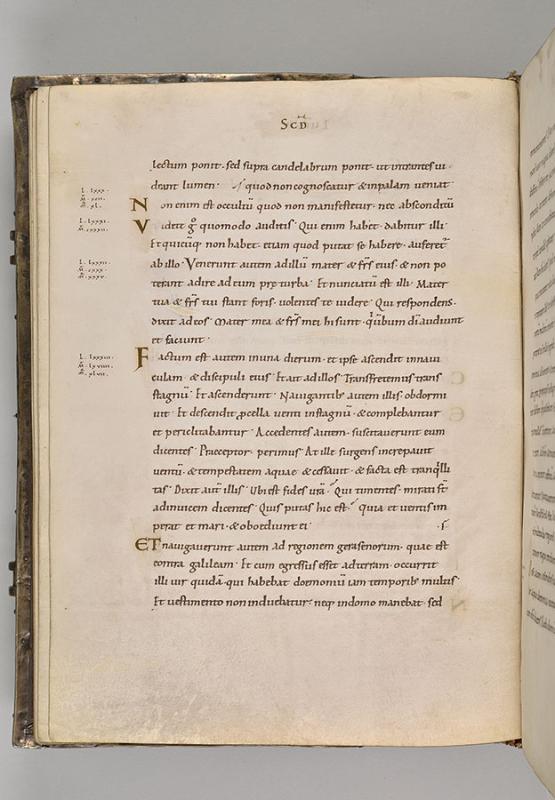 SCD
lectum ponit · sed supra candelabrum ponit · ut intrantes vi
deant lumen · quod non cognoscatur & inpalam veniat
Non enim est occultū quod non manifestetur · nec absconditū
Videte g° quomodo auditis · Qui enim habet · dabitur illi ·
Et quicūq; non habet · etiam quod putat se habere · auferet̄
ab illo · Venerunt autem ad illū mater & frs̄ eius · & non po
terant adire ad eum prę turba · Et nunciatū est illi · Mater
tua & frs̄ tui stant foris · volentes te videre · Qui respondens ·
dixit ad eos · Mater mea & frs̄ mei hi sunt · qui verbum dī audiunt
et faciunt ·
Factum est autem in una dierum · et ipse ascendit in navi
culam · & discipuli eius · Et ait ad illos · Transfretemus trans
stagnū · Et ascenderunt · Navigantib; autem illis · obdormi
vit · Et descendit procella venti in stagnū · & complebantur
et periclitabantur · Accedentes autem · suscitaverunt eum
dicentes · Praeceptor · perimus · At ille surgens increpavit
ventū · & tempestatem aquae · & cessavit · & facta est tranqlli
tas · Dixit aut̄ illis · Ubi est fides vrā · Qui timentes · mirati st̄
ad invicem dicentes · Quis putas hic est · quia et ventis im
perat et mari · & oboediunt ei · s ·
ET navigaverunt autem ad regionem gerasenorum · quae est
contra galileam · Et cum egressus esset ad terram · occurrit
illi vir quidā · qui habebat doemoniū iam temporib; multis
Et vestimento non induebatur · neq; in domo manebat · sed